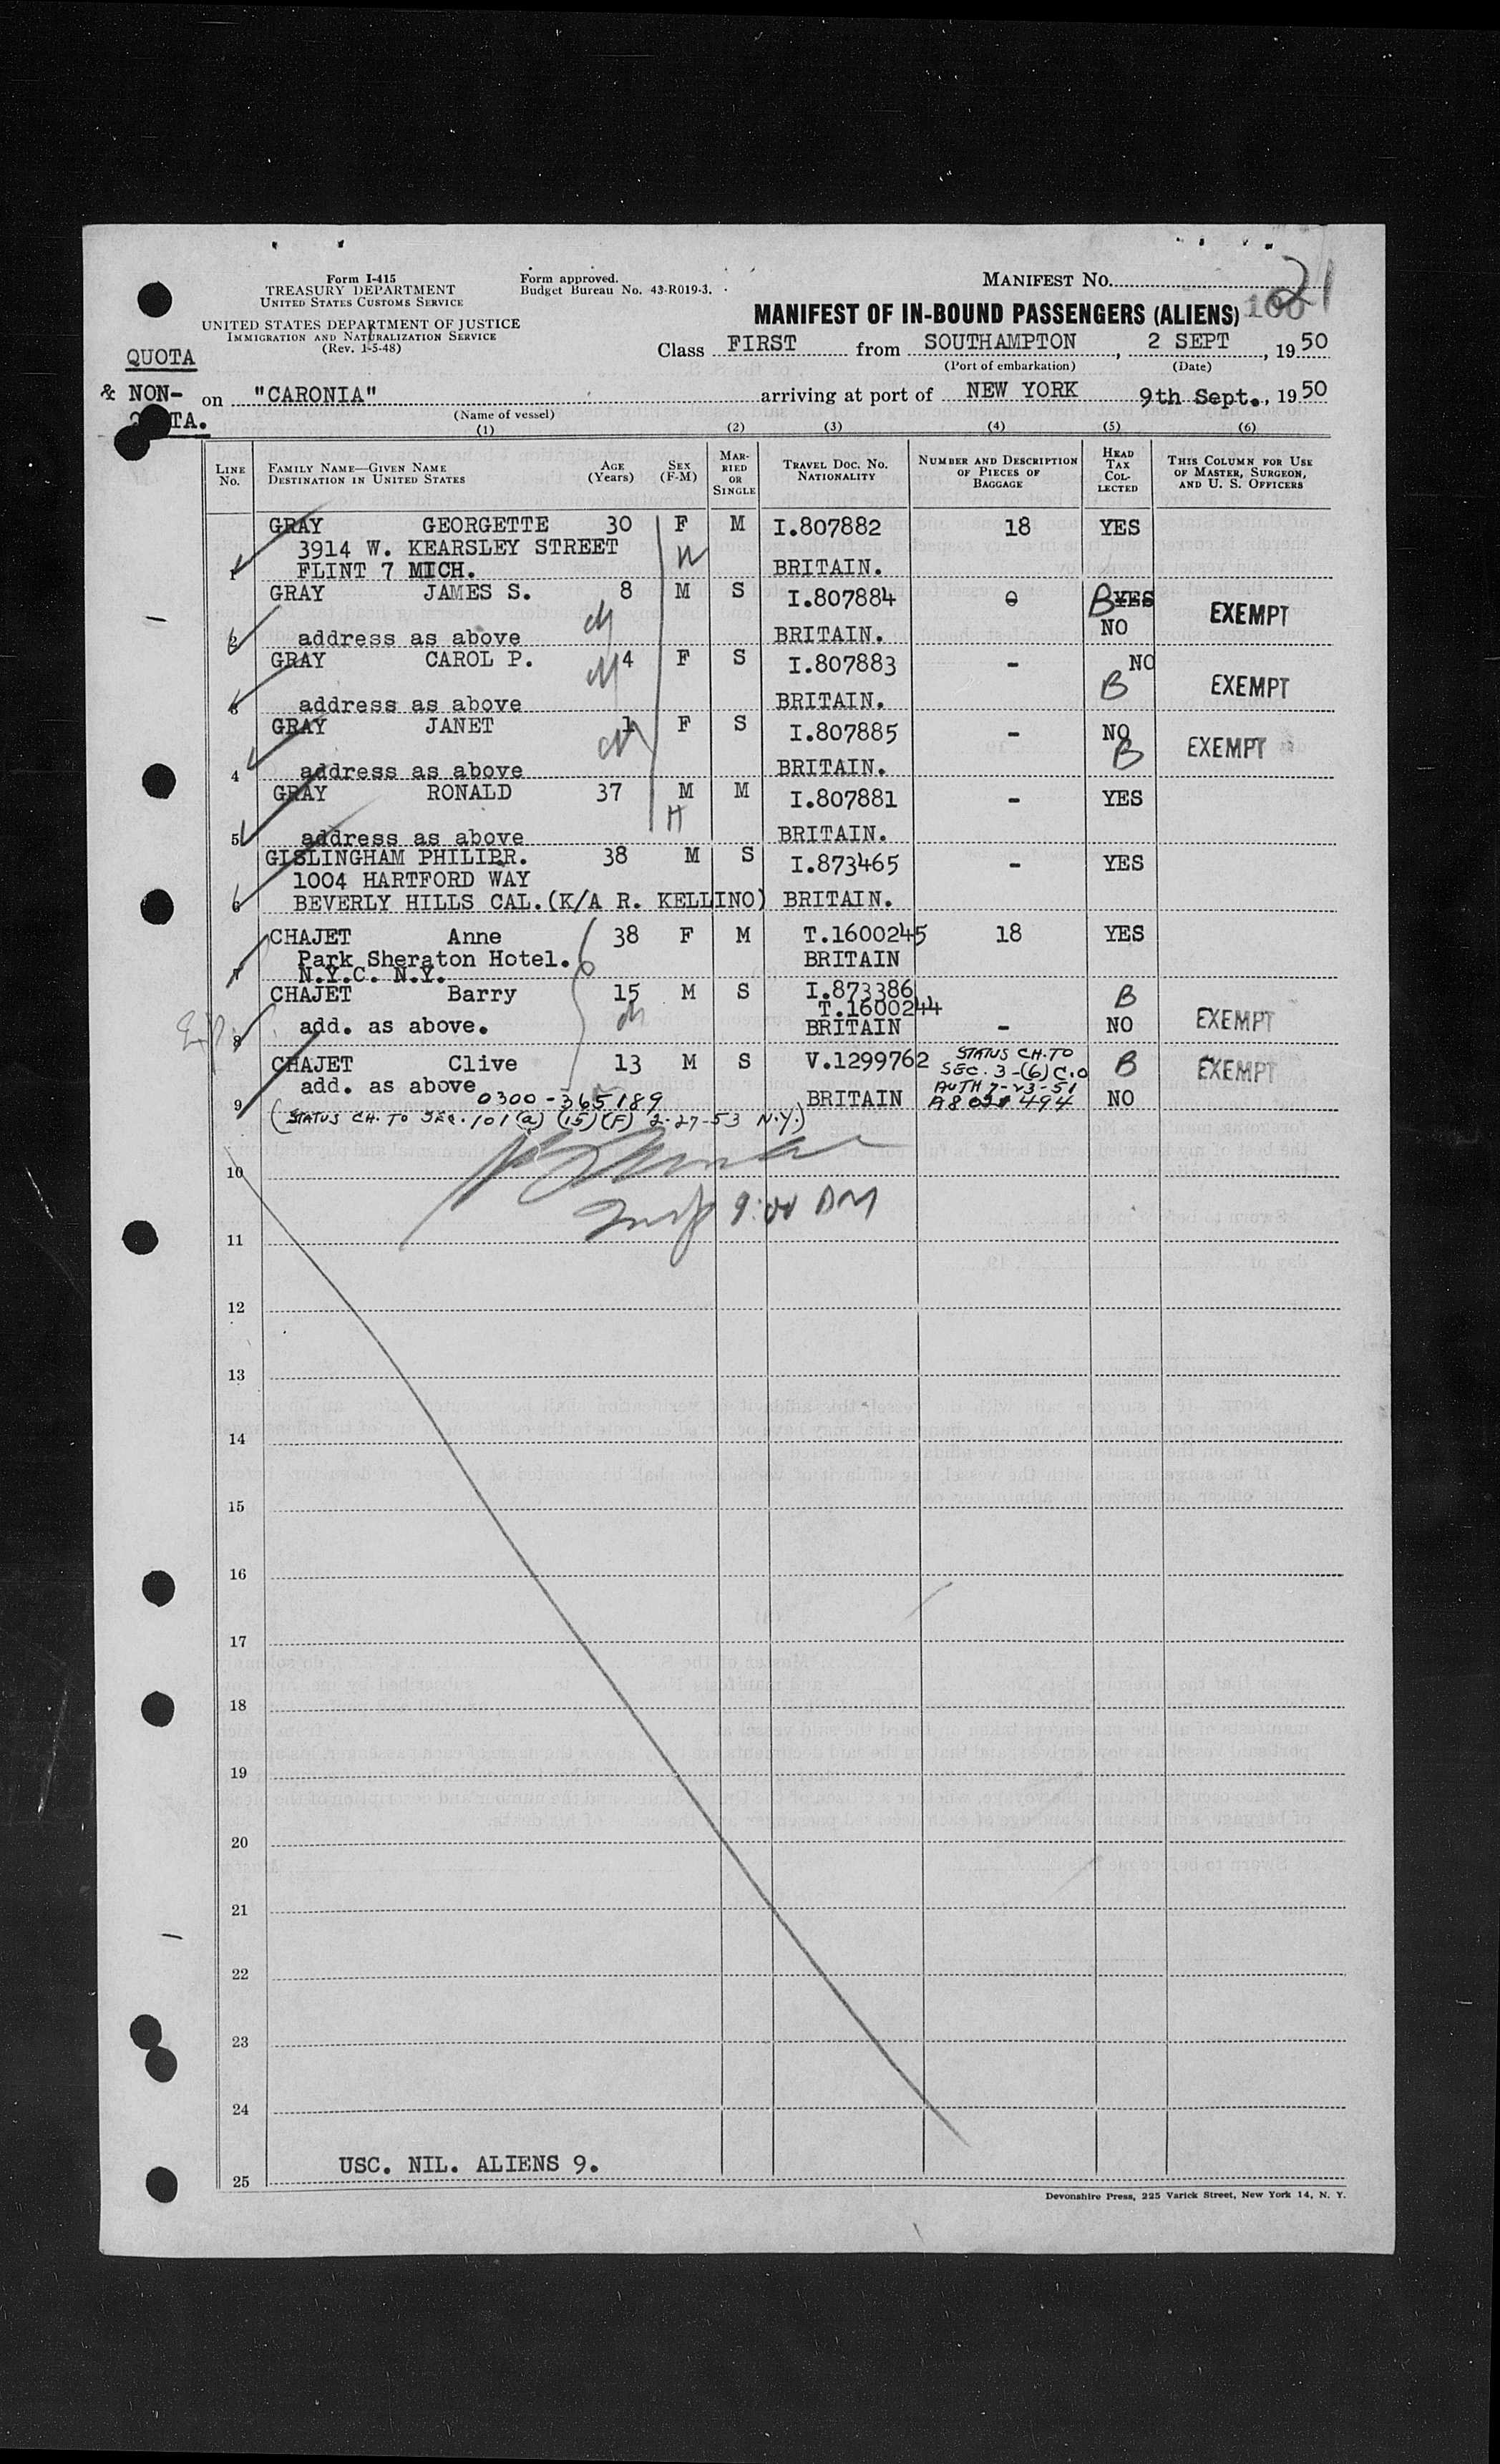 MANIFEST NO. 21
100
Form I-415
TREASURY DEPARTMENT
UNITED STATES CUSTOMS SERVICE
Form approved.
Budget Bureau No. 43-R019-3.
UNITED STATES DEPARTMENT OF JUSTICE
IMMIGRATION AND NATURALIZATION SERVICE
(Rev. 1-5-48)
MANIFEST OF IN-BOUND PASSENGERS (ALIENS)
QUOTA
& NON-
TA.
Class FIRST from SOUTHAMPTON, 2 SEPT, 1950
(Port of embarkation) (Date)
on "CARONIA" arriving at port of NEW YORK 9th Sept., 1950
(Name of vessel)
(1) (2) (3) (4) (5) (6)
LINE NO. FAMILY NAME—GIVEN NAME DESTINATION IN UNITED STATES AGE (Years) SEX (F-M) MARRIED OR SINGLE TRAVEL DOC. NO. NATIONALITY NUMBER AND DESCRIPTION OF PIECES OF BAGGAGE HEAD TAX COLLECTED THIS COLUMN FOR USE OF MASTER, SURGEON, AND U. S. OFFICERS
GRAY GEORGETTE 30 F M I.807882 18 YES
3914 W. KEARSLEY STREET W
1 FLINT 7 MICH. BRITAIN.
GRAY JAMES S. 8 M S I.807884 0 B YES EXEMPT
2 address as above BRITAIN. NO
GRAY CAROL P. 4 F S I.807883 - NO
3 address as above BRITAIN. B EXEMPT
GRAY JANET 1 F S I.807885 - NO
4 address as above BRITAIN. B EXEMPT
GRAY RONALD 37 M M I.807881 - YES
H
5 address as above BRITAIN.
GISLINGHAM PHILIPR. 38 M S I.873465 - YES
1004 HARTFORD WAY
6 BEVERLY HILLS CAL.(K/A R. KELLINO) BRITAIN.
CHAJET Anne 38 F M T.1600245 18 YES
Park Sheraton Hotel. BRITAIN
7 N.Y.C. N.Y.
CHAJET Barry 15 M S I.873386 B
T.1600244
8 add. as above. BRITAIN - NO EXEMPT
CHAJET Clive 13 M S V.1299762 STATUS CH. TO B EXEMPT
add. as above SEC. 3-(6) C.O
0300-365189 BRITAIN AUTH 7-23-51 NO
9 (STATUS CH. TO SEC. 101 (a) (15) (F) 2-27-53 N.Y.)
10
11
12
13
14
15
16
17
18
19
20
21
22
23
24
USC. NIL. ALIENS 9.
25
Devonshire Press, 225 Varick Street, New York 14, N. Y.